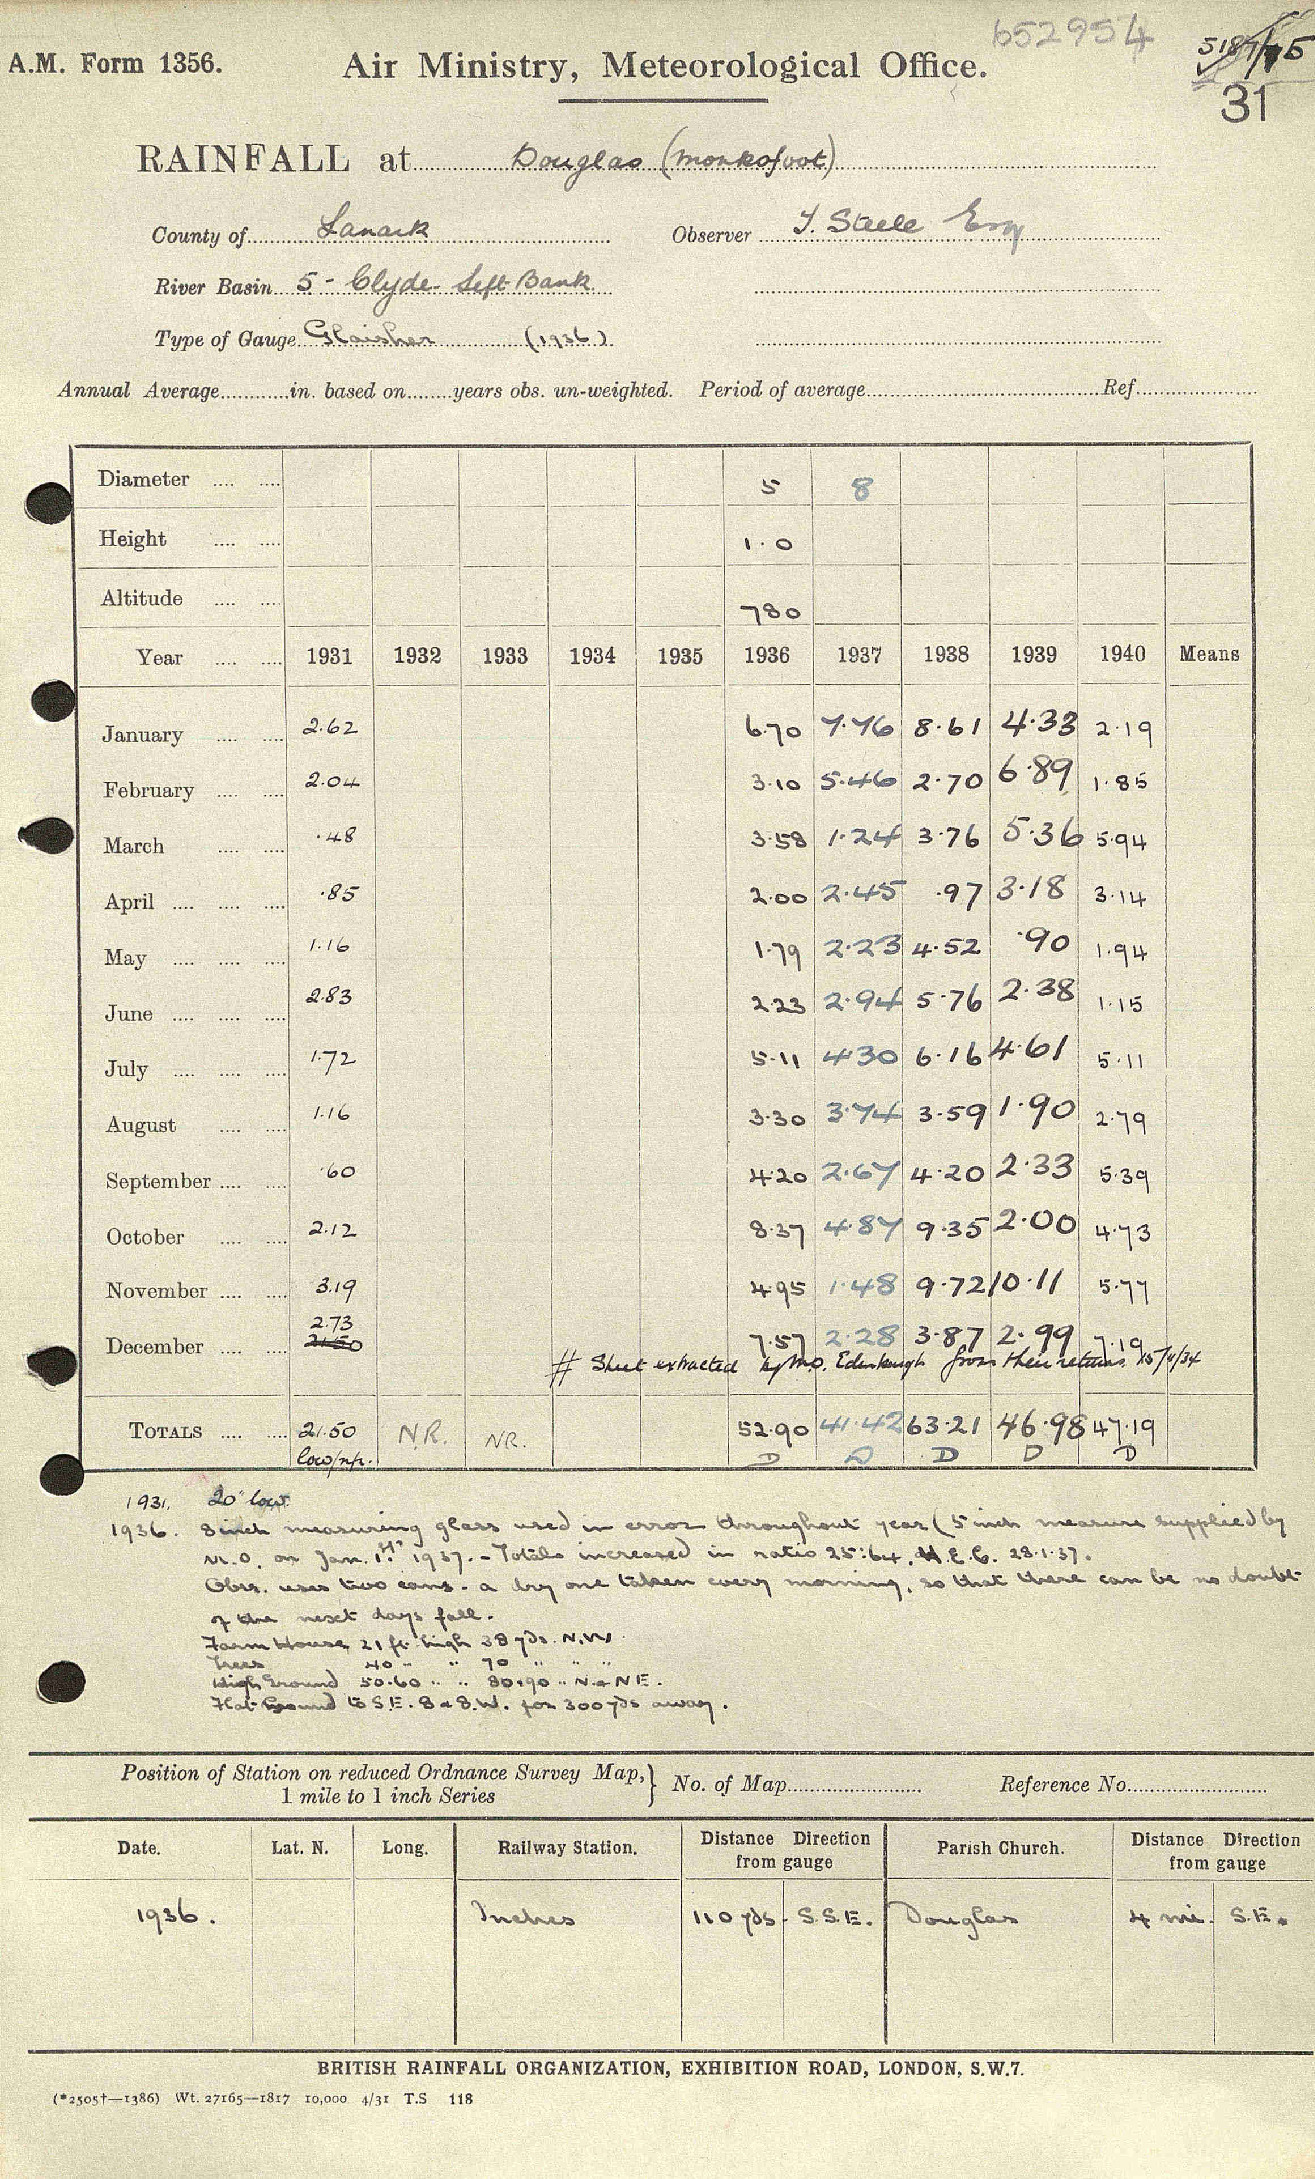 652954
5187/75
A.M. Form 1356.
Air Ministry, Meteorological Office.
31
RAINFALL at Douglas (Monksfoot)
County of Lanark Observer T. Steele Esq
River Basin 5 - Clyde - Left Bank
Type of Gauge Glaisher (1936)
Annual Average in. based on years obs. un-weighted. Period of average Ref.
Diameter 5 8
Height 1.0
Altitude 780
Year 1931 1932 1933 1934 1935 1936 1937 1938 1939 1940 Means
January 2.62 6.70 7.76 8.61 4.33 2.19
February 2.04 3.10 5.46 2.70 6.89 1.85
March .48 3.58 1.24 3.76 5.36 5.94
April .85 2.00 2.45 .97 3.18 3.14
May 1.16 1.79 2.23 4.52 .90 1.94
June 2.83 2.23 2.94 5.76 2.38 1.15
July 1.72 5.11 4.30 6.16 4.61 5.11
August 1.16 3.30 3.74 3.59 1.90 2.79
September .60 4.20 2.67 4.20 2.33 5.39
October 2.12 8.37 4.87 9.35 2.00 4.73
November 3.19 4.95 1.48 9.72 10.11 5.77
2.73
December 21.50 7.57 2.28 3.87 2.99 7.19
# Sheet extracted by M.O. Edinburgh from their returns
TOTALS 21.50 N.R. N.R. 52.90 41.42 63.21 46.98 47.19
low/np. D D D D D
1931. 20" low
1936. 8 inch measuring glass used in error throughout year (5 inch measure supplied by
M.O. on Jan. 1st 1937. - Totals increased in ratio 25:64. H.E.C. 28.1.37.
Obsr. uses two cans - a dry one taken every morning, so that there can be no doubt
of the next days fall.
Farm House 21 ft high 38 yds N.W
Trees 40 " " 70 " " "
High Ground 50-60 " " 80-90 " N & NE.
Flat Ground to S.E. S & S.W. for 300 yds away.
Position of Station on reduced Ordnance Survey Map,
1 mile to 1 inch Series } No. of Map Reference No.
Date. Lat. N. Long. Railway Station. Distance Direction from gauge Parish Church. Distance Direction from gauge
1936. Inches 110 yds. S.S.E. Douglas 4 mi. S.E.
BRITISH RAINFALL ORGANIZATION, EXHIBITION ROAD, LONDON, S.W.7.
(*2505†—1386) Wt. 27165—1817 10,000 4/31 T.S 118